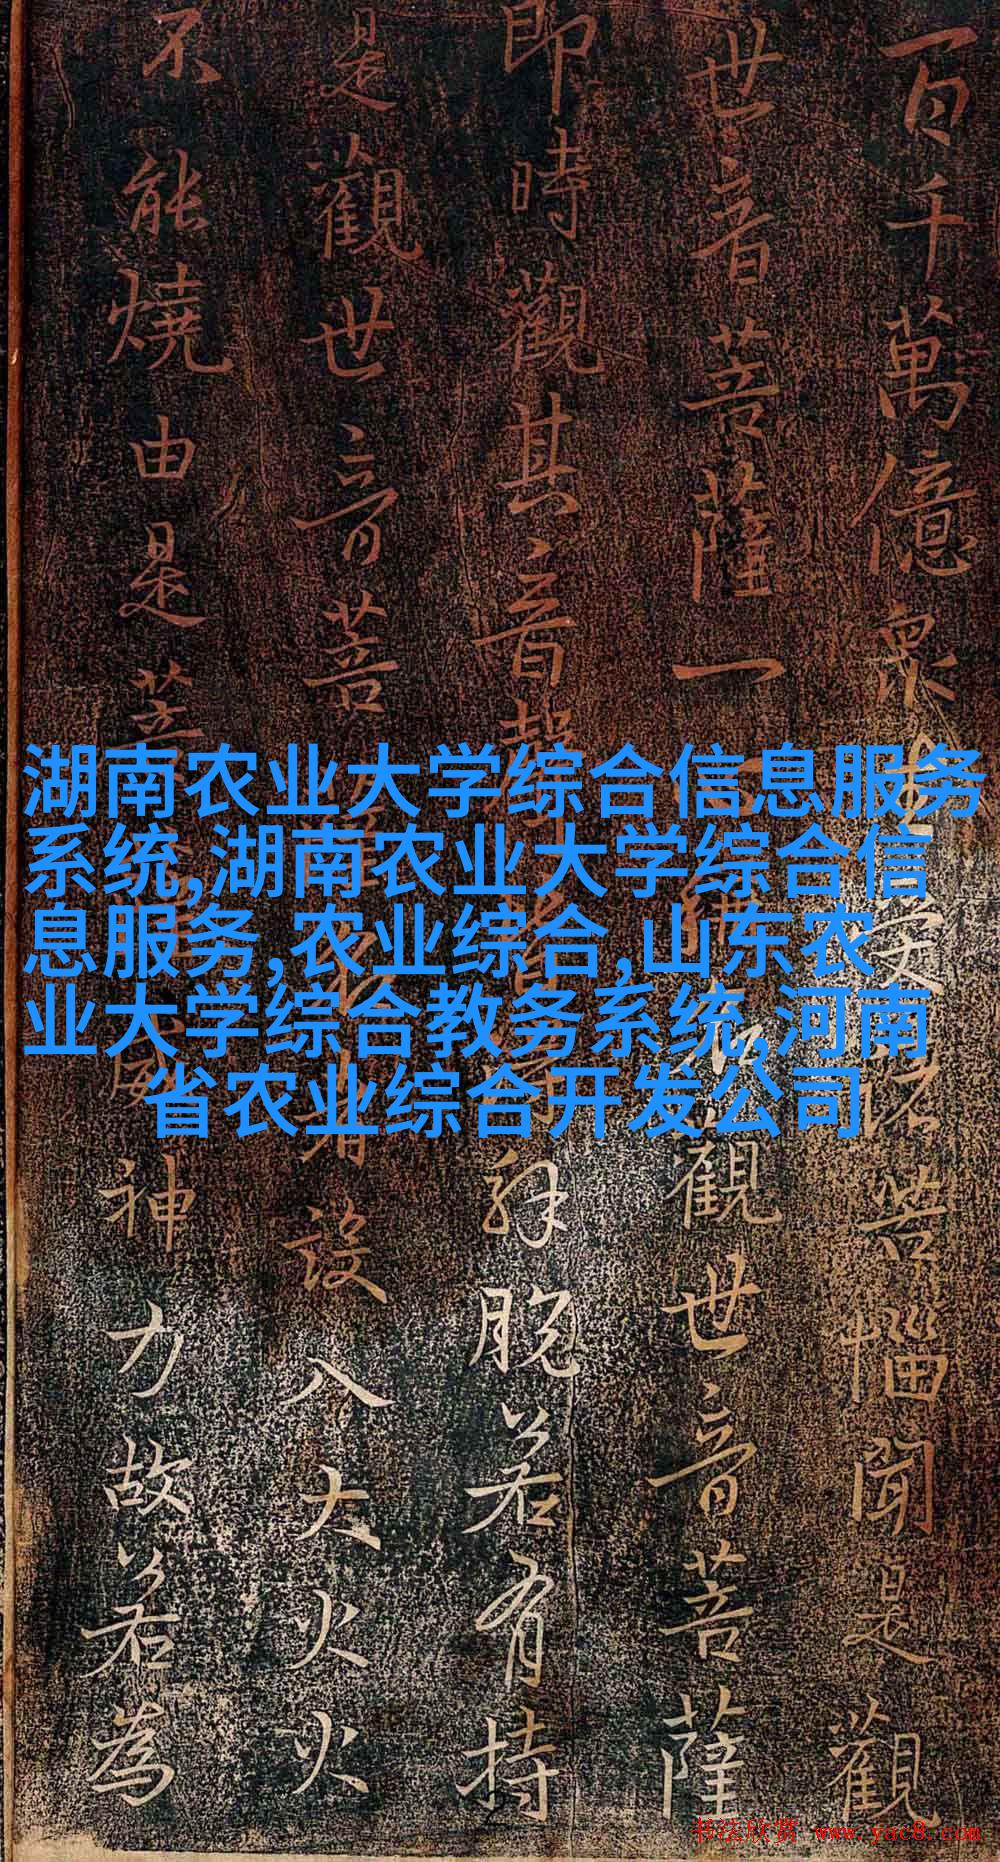 百千萬億眾生受諸苦惱聞是觀
世音菩薩一稱名觀世音菩薩
即時觀其音聲皆解脫若有持
是觀世音菩名者設入大火火
不能燒由是菩威神力故若為
湖南农业大学综合信息服务
系统,湖南农业大学综合信
息服务,农业综合,山东农
业大学综合教务系统,河南
省农业综合开发公司
书法欣赏 www.yac8.com